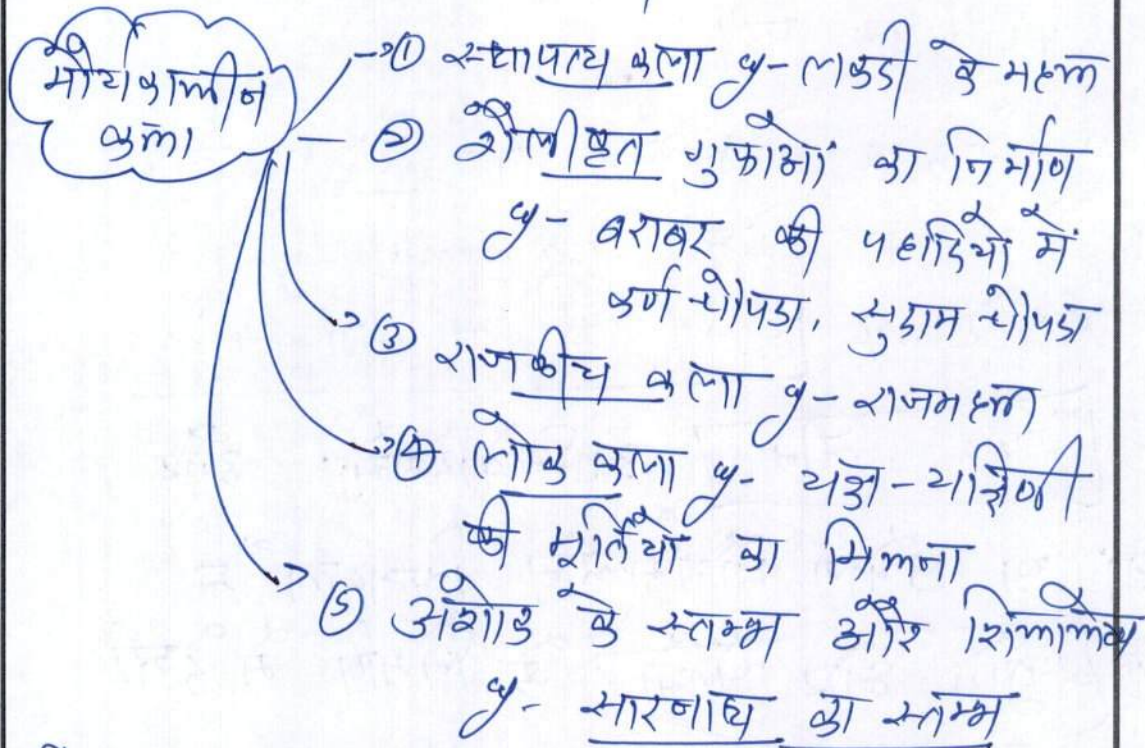 मौर्यकालीन
कला
① स्थापत्य कला y- लकडी के महल
② शैलीकृत गुफाओं का निर्माण
y- बराबर की पहाडियों में
कर्ण चोपडा, सुदाम चोपडा
③ राजकीय कला y- राजमहल
④ लोक कला y- यक्ष-यक्षिणी
की मूर्तियों का मिलना
⑤ अशोक के स्तम्भ और शिलालेख
y- सारनाथ का स्तम्भ